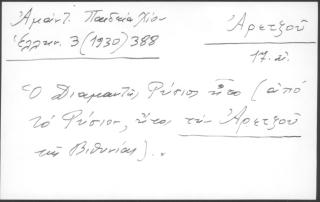 Ἀμάντ. Παιδεία Χίου
Ἑλλην. 3 (1930) 388
Ἀρετζοῦ
17. αἰ.
Ὁ Διαμαντῆς Ρύσιος ἦτο (ἀπό
τό Ρύσιον, ἤτοι τήν Ἀρετζοῦ
τῆς Βιθυνίας).